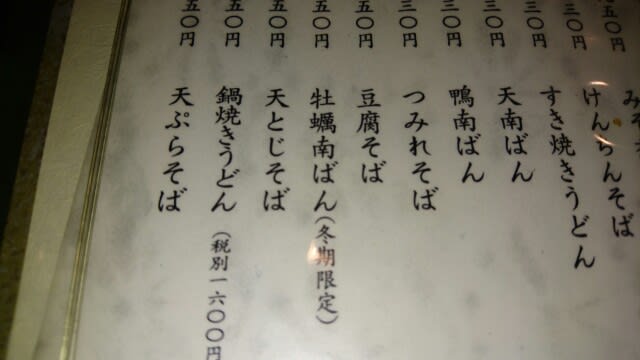 けんちんそば
すき焼きうどん
天南ばん
鴨南ばん
つみれそば
豆腐そば
牡蠣南ばん(冬期限定)
天とじそば
鍋焼きうどん(税別一六〇〇円)
天ぷらそば
五〇円
三〇円
三〇円
三〇円
三〇円
五〇円
五〇円
五〇円
五〇円